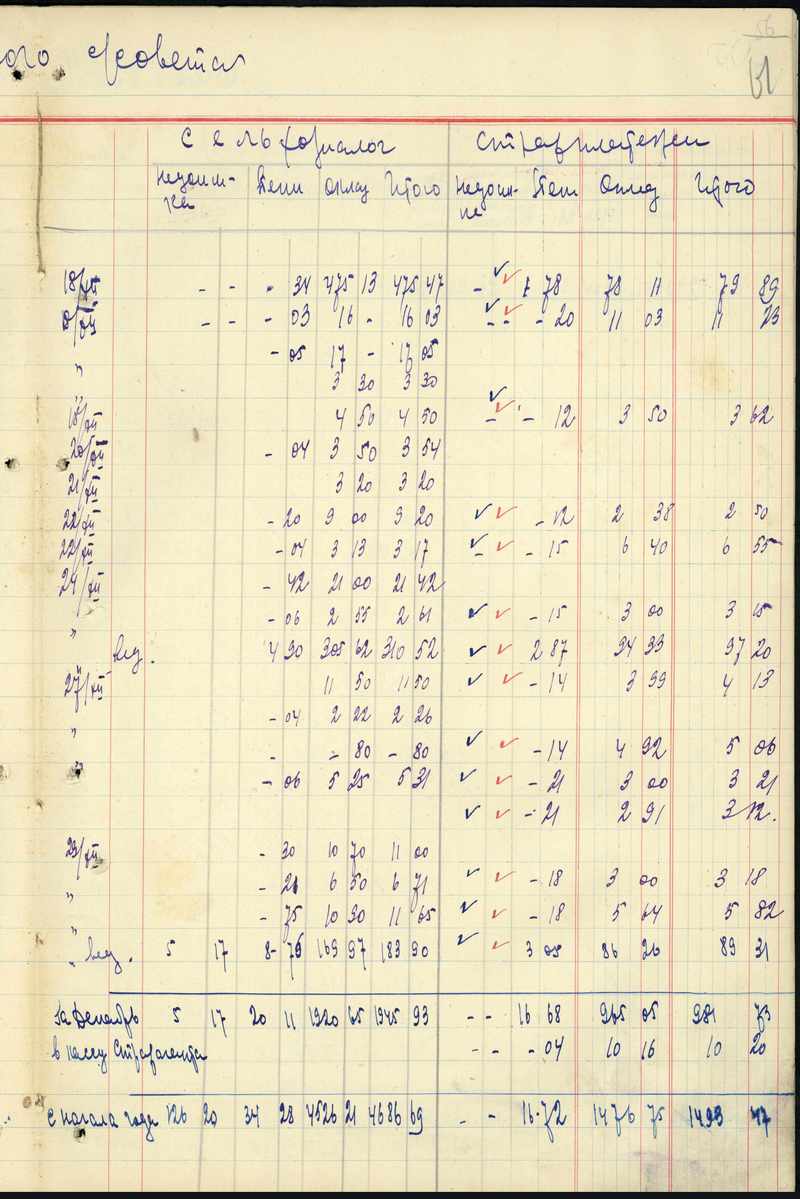 56
61
ого совета
сельхозналог страхплатежи
Недоим- Пени Оклад Итого Недоим- Пени Оклад Итого
ка ка
18/XII - - - 34 475 13 475 47 - 1 78 78 11 79 89
- - - 03 16 - 16 03 - - - 20 11 03 11 23
- 05 17 - 17 05
" 3 30 3 30
4 50 4 50 - - 12 3 50 3 62
20/XII - 04 3 50 3 54
21/XII 3 20 3 20
22/XII - 20 9 00 9 20 - 12 2 38 2 50
22/XII - 04 3 13 3 17 - - 15 6 40 6 55
24/XII - 42 21 00 21 42
" - 06 2 55 2 61 - 15 3 00 3 15
вед. 4 90 305 62 310 52 2 87 94 33 97 20
27/XII 11 50 11 50 - 14 3 99 4 13
" - 04 2 22 2 26
- - 80 - 80 - 14 4 92 5 06
" - 06 5 25 5 31 - 21 3 00 3 21
- 21 2 91 3 12.
- 30 10 70 11 00
" - 21 6 50 6 71 - 18 3 00 3 18
" - 75 10 90 11 65 - 18 5 64 5 82
" вед. 5 17 8 - 76 169 97 183 90 3 05 86 26 89 31
За Декабрь 5 17 20 11 1920 65 1945 93 - - 16 68 965 05 981 73
в кассу Страхагента - - - 04 10 16 10 20
С начала года 126 20 34 28 4526 21 4686 69 - - 16.72 1476 75 1493 47